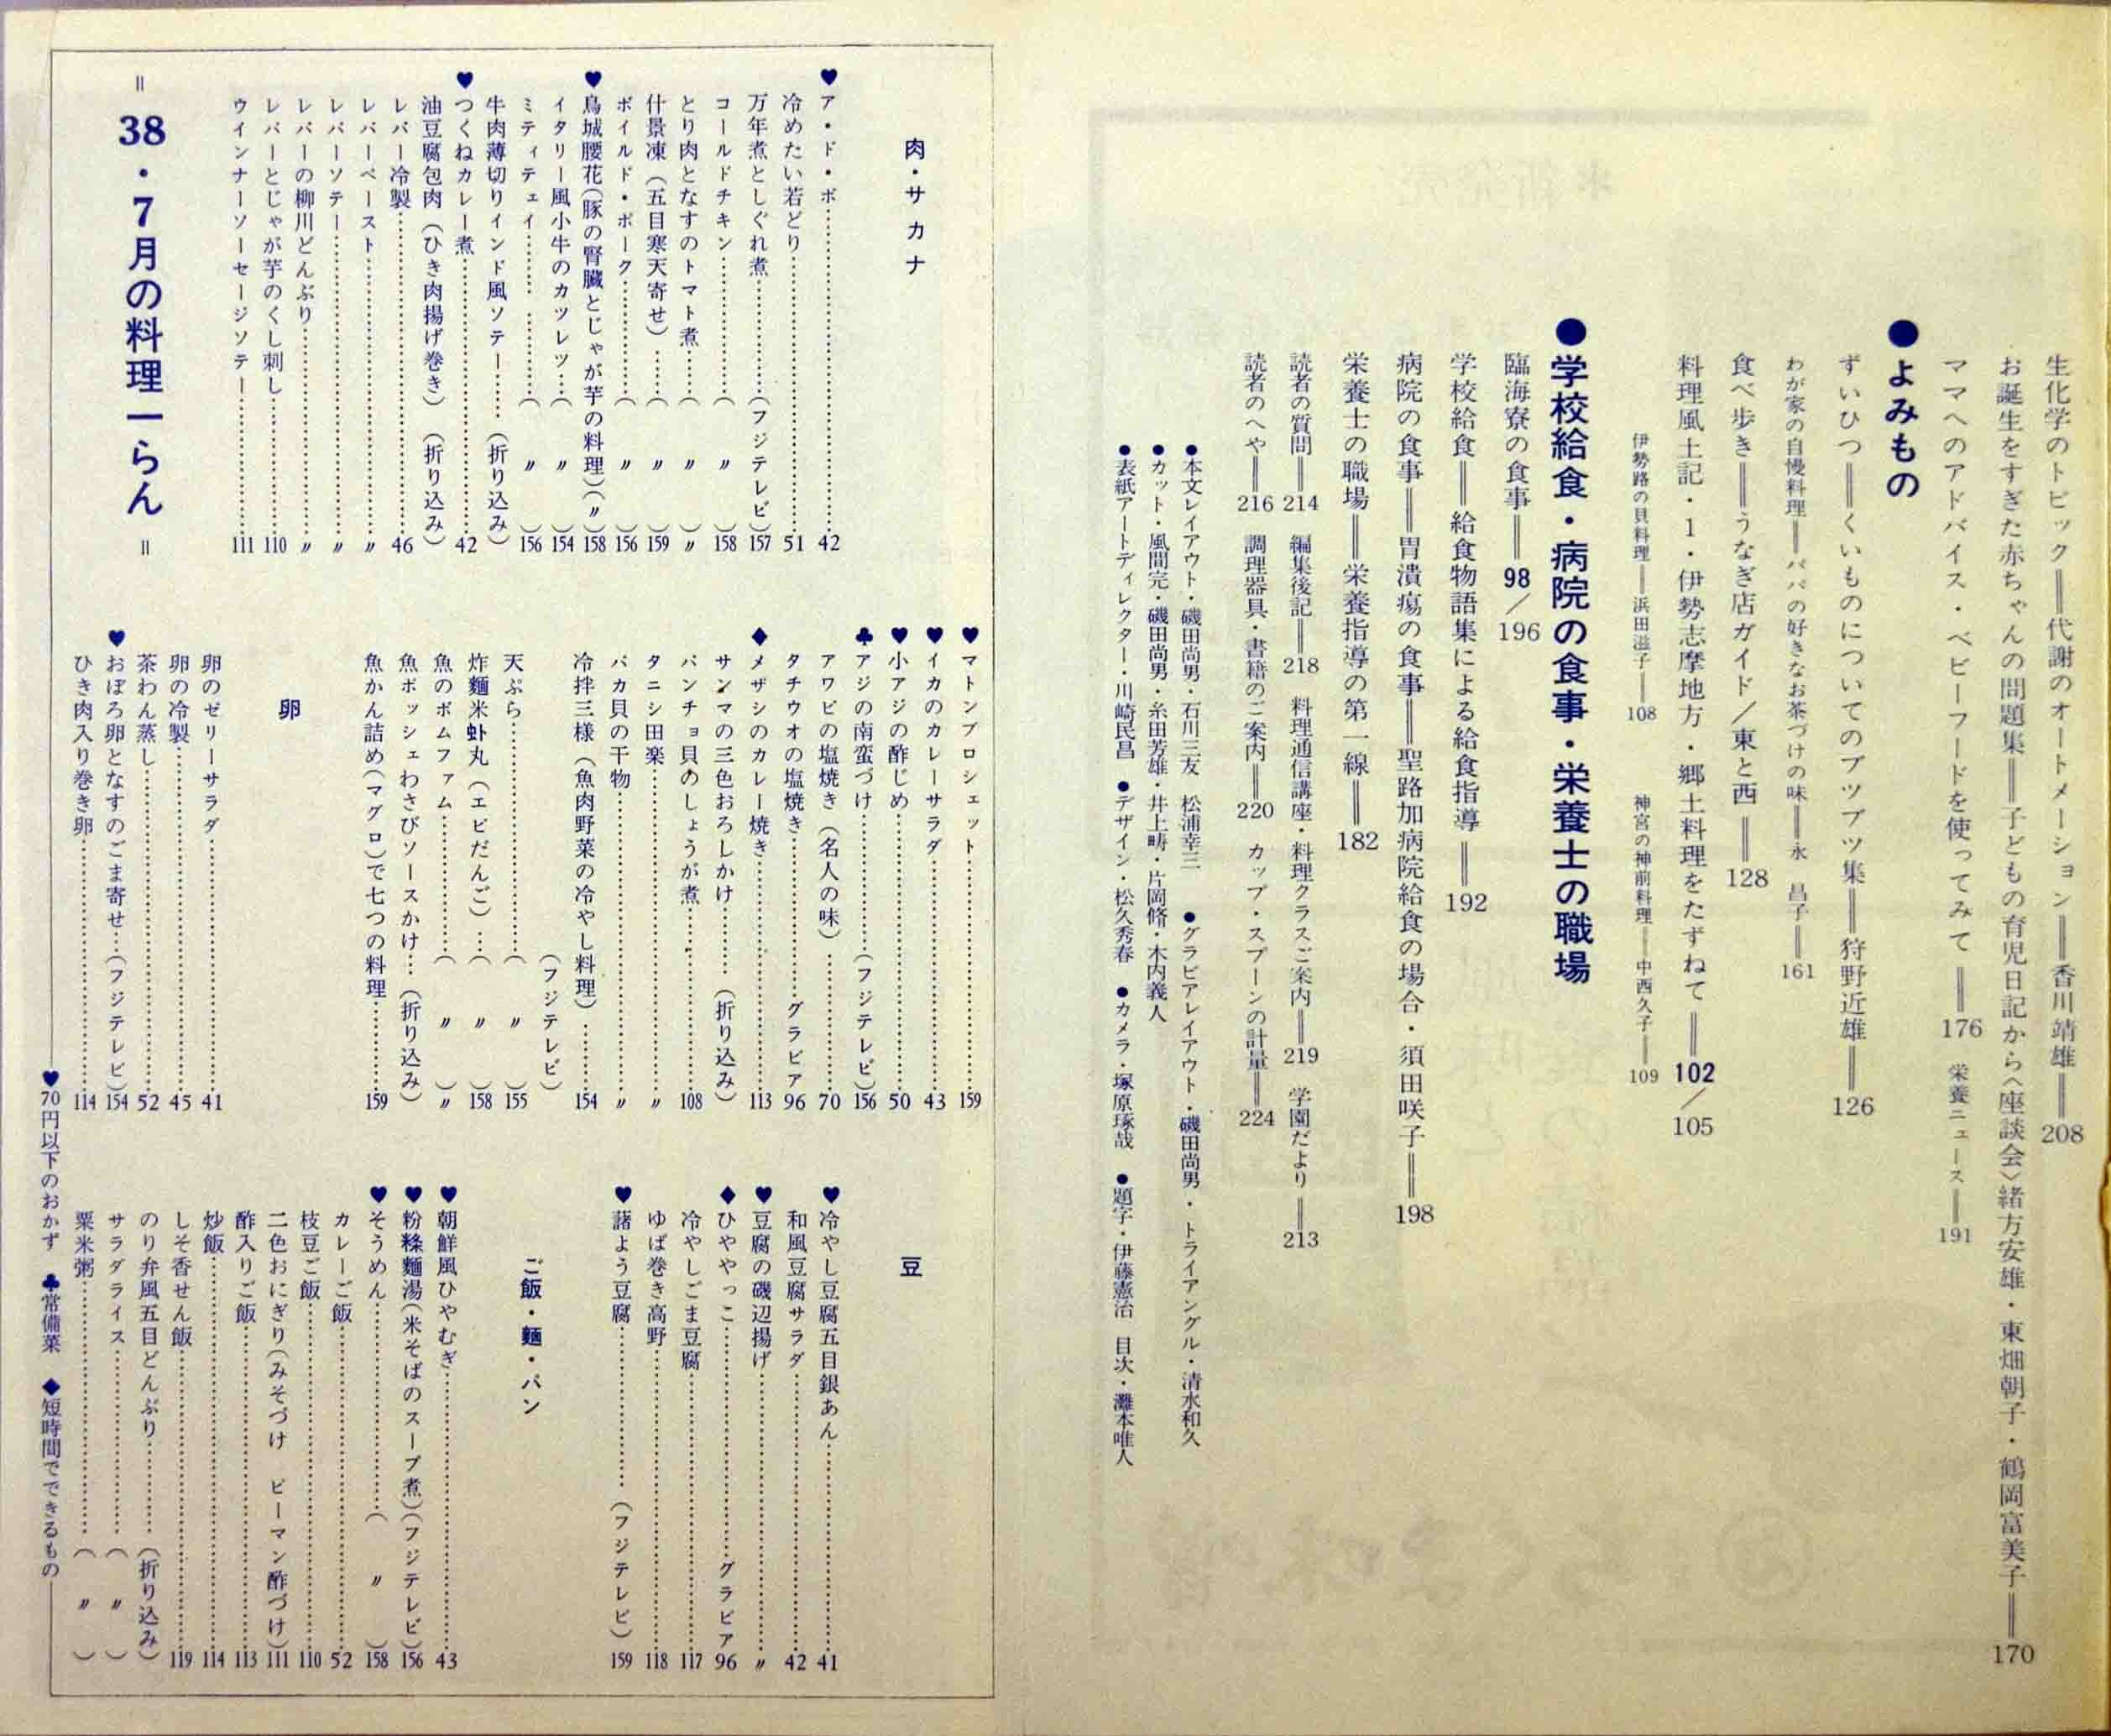 生化学のトピック═代謝のオートメーション═香川靖雄═208
お誕生をすぎた赤ちゃんの問題集═子どもの育児日記から〈座談会〉緒方安雄・東畑朝子・鶴岡富美子═170
ママへのアドバイス・ベビーフードを使ってみて═176 栄養ニュース═191
●よみもの
ずいひつ═くいものについてのブツブツ集═狩野近雄═126
わが家の自慢料理═パパの好きなお茶づけの味═永 昌子═161
食べ歩き═うなぎ店ガイド／東と西═128
料理風土記・1・伊勢志摩地方・郷土料理をたずねて═102／105
伊勢路の貝料理═浜田滋子═108 神宮の神前料理═中西久子═109
●学校給食・病院の食事・栄養士の職場
臨海寮の食事═98／196
学校給食═給食物語集による給食指導═192
病院の食事═胃潰瘍の食事═聖路加病院給食の場合・須田咲子═198
栄養士の職場═栄養指導の第一線═182
読者の質問═214 編集後記═218 料理通信講座・料理クラスご案内═219 学園だより═213
読者のへや═216 調理器具・書籍のご案内═220 カップ・スプーンの計量═224
●本文レイアウト・磯田尚男・石川三友 松浦幸三 ●グラビアレイアウト・磯田尚男・トライアングル・清水和久
●カット・風間完・磯田尚男・糸田芳雄・井上疇・片岡脩・木内義人
●表紙アートディレクター・川崎民昌 ●デザイン・松久秀春 ●カメラ・塚原琢哉 ●題字・伊藤憲治 目次・灘本唯人
肉・サカナ
♥ア・ド・ボ……42
冷めたい若どり……51
万年煮としぐれ煮……（フジテレビ）157
コールドチキン……（〃）158
とり肉となすのトマト煮……（〃）〃
什景凍（五目寒天寄せ）……（〃）159
ボイルド・ポーク……（〃）156
♥鳥城腰花（豚の腎臓とじゃが芋の料理）（〃）158
イタリー風小牛のカツレツ……（〃）154
ミティテェイ……（〃）156
牛肉薄切りインド風ソテー……（折り込み）
♥つくねカレー煮……42
油豆腐包肉（ひき肉揚げ巻き）（折り込み）
レバー冷製……46
レバーペースト……〃
レバーソテー……〃
レバーの柳川どんぶり……〃
レバーとじゃが芋のくし刺し……110
ウインナーソーセージソテー……111
＝38・7月の料理一らん＝
♥マトンブロシェット……159
♥イカのカレーサラダ……43
♥小アジの酢じめ……50
♣アジの南蛮づけ……（フジテレビ）156
アワビの塩焼き（名人の味）……70
タチウオの塩焼き……グラビア96
♦メザシのカレー焼き……113
サンマの三色おろしかけ……（折り込み）
バンチョ貝のしょうが煮……108
タニシ田楽……〃
バカ貝の干物……〃
冷拌三様（魚肉野菜の冷やし料理）……154
（フジテレビ）
天ぷら……（〃）155
炸麵米虾丸（エビだんご）……（〃）158
魚のボムファム……（〃）〃
魚ポッシェわさびソースかけ……（折り込み）
魚かん詰め（マグロ）で七つの料理……159
卵
卵のゼリーサラダ……41
卵の冷製……45
茶わん蒸し……52
♥おぼろ卵となすのごま寄せ…（フジテレビ）154
ひき肉入り巻き卵……114
豆
♥冷やし豆腐五目銀あん……41
和風豆腐サラダ……42
♥豆腐の磯辺揚げ……〃
♦ひややっこ……グラビア96
冷やしごま豆腐……117
ゆば巻き高野……118
♥藷よう豆腐……（フジテレビ）159
ご飯・麺・パン
♥朝鮮風ひやむぎ……43
♥粉糝麵湯（米そばのスープ煮）（フジテレビ）156
♥そうめん……（〃）158
カレーご飯……52
枝豆ご飯……110
二色おにぎり（みそづけ ピーマン酢づけ）111
酢入りご飯……113
炒飯……114
しそ香せん飯……119
のり弁風五目どんぶり……（折り込み）
サラダライス……（〃）
粟米粥……（〃）
♥70円以下のおかず ♣常備菜 ♦短時間でできるもの